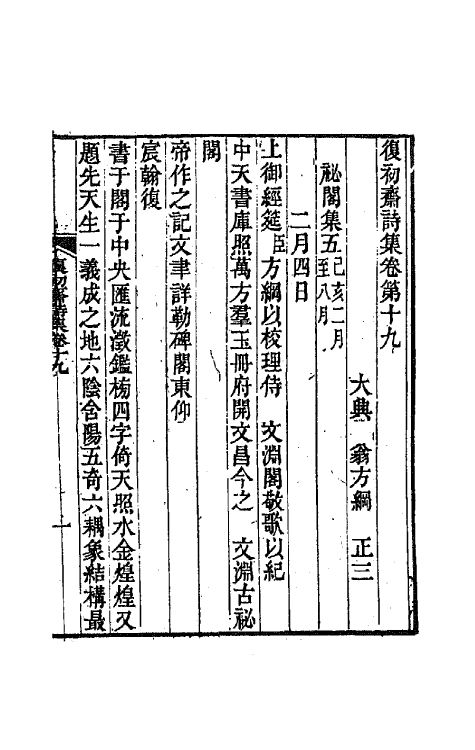 復初齋詩集卷第十九
大興 翁方綱 正三
祕閣集五己亥二月至八月
二月四日
上御經筵臣方綱以校理侍 文淵閣敬歌以紀
中天書庫照萬方羣玉冊府開文昌今之 文淵古祕
閣
帝作之記文聿詳勒碑閣東仰
宸翰復
書于閣于中央匯流澂鑑榜四字倚天照水金煌煌又
題先天生一義成之地六陰含陽五奇六耦象結構最
復初齋詩集卷十九
一